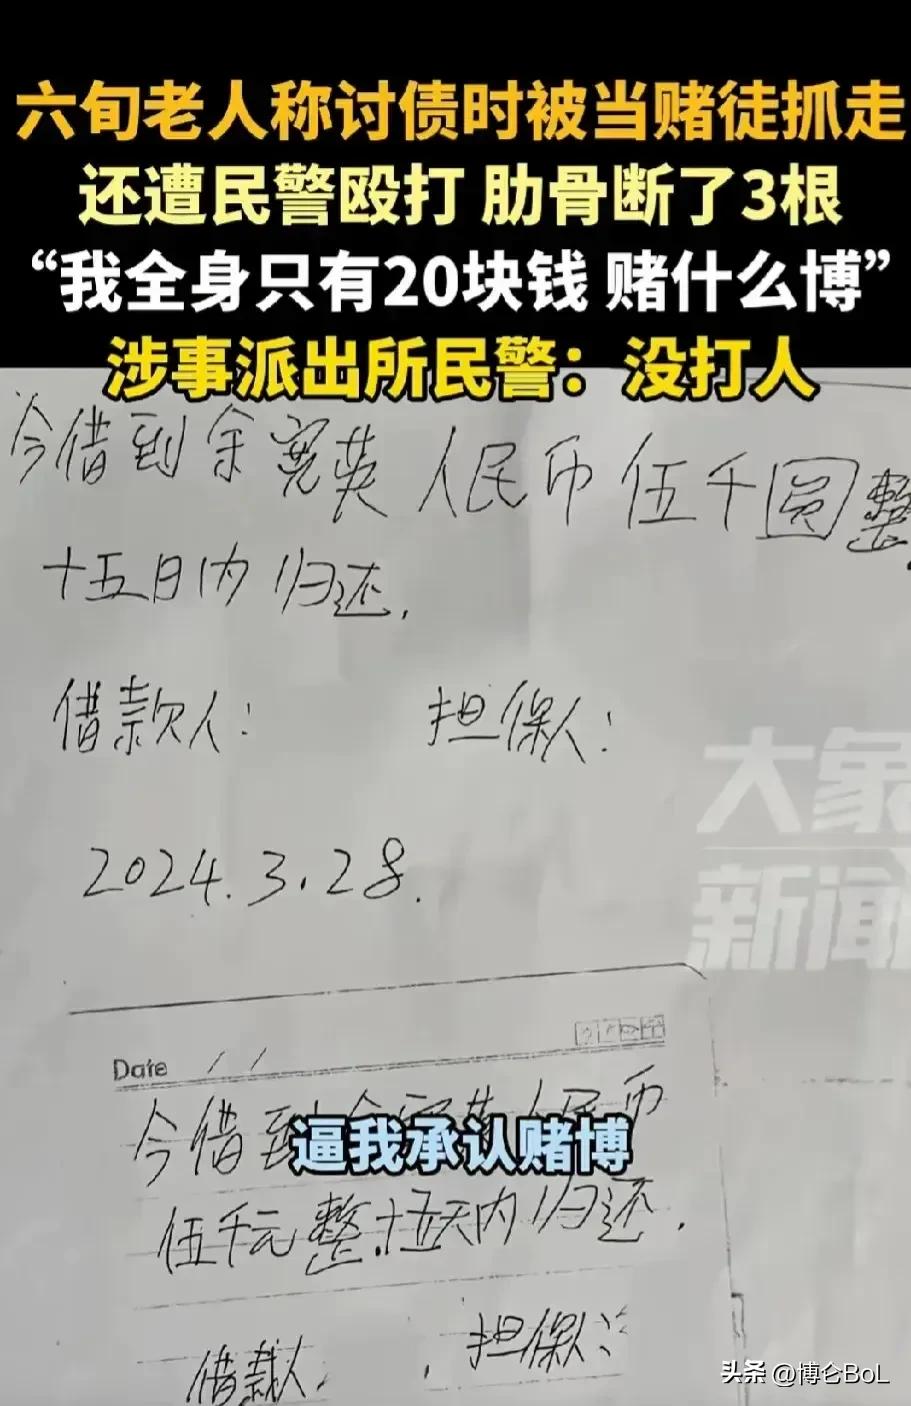 六旬老人称讨债时被当赌徒抓走
还遭民警殴打 肋骨断了3根
“我全身只有20块钱 赌什么博”
涉事派出所民警：没打人
今借到余宽英人民币伍千圆整
十五日内归还.
借款人：　担保人：
2024.3.28.
大象新闻
Date / /
今借到
人民币
逼我承认赌博
伍千元整.十五天内归还.
借款人.　担保人：
头条 @博仑BoL